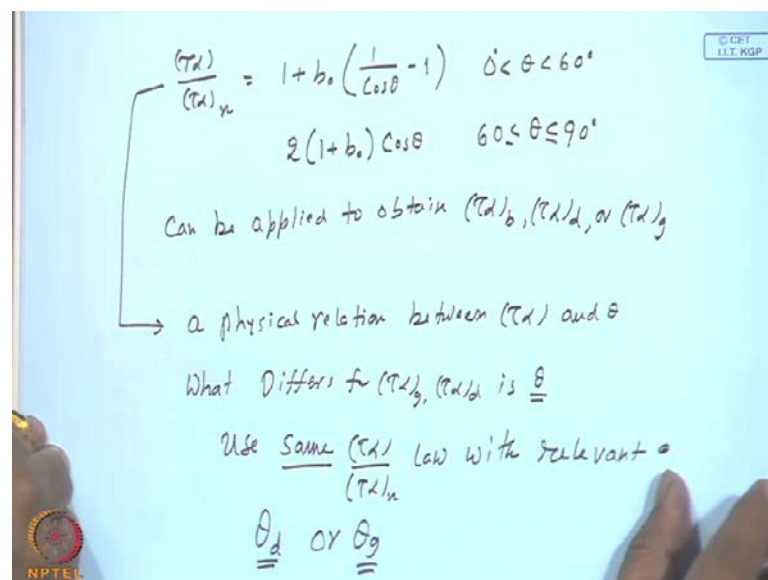 © CET
I.I.T. KGP
(τα)/(τα)n = 1 + b₀ (1/Cosθ - 1) 0° < θ < 60°
2(1+b₀) Cosθ 60 ≤ θ ≤ 90°
Can be applied to obtain (τα)b, (τα)d, or (τα)g
→ a physical relation between (τα) and θ
What Differs for (τα)g, (τα)d is θ
Use Same (τα)/(τα)n law with relevant
θd or θg
NPTEL